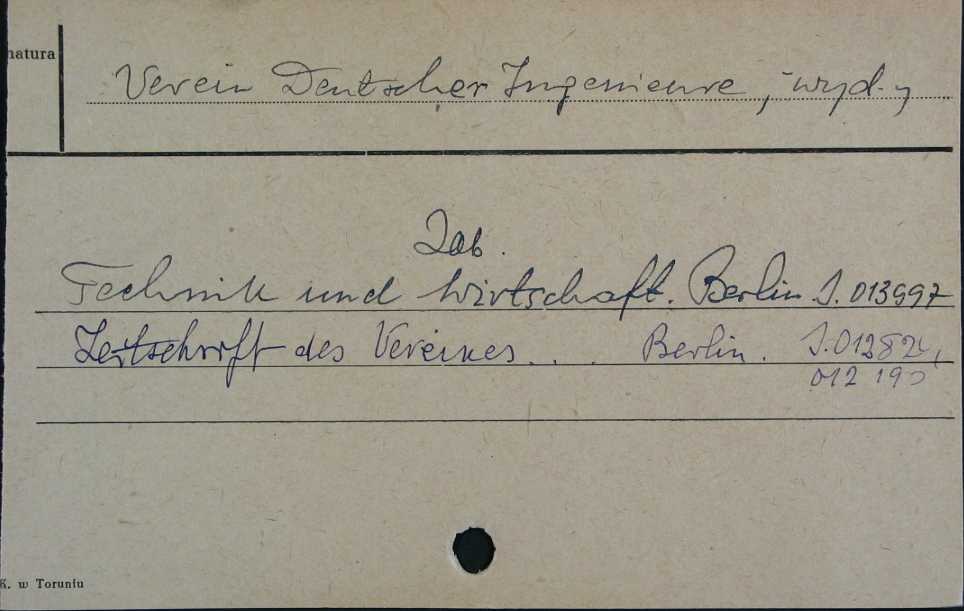 natura
Verein Deutscher Ingenieure, wyd.
Zob.
Technik und Wirtschaft. Berlin. S. 013997
Zeitschrift des Vereines . . . Berlin.
012 190
K. w Toruniu